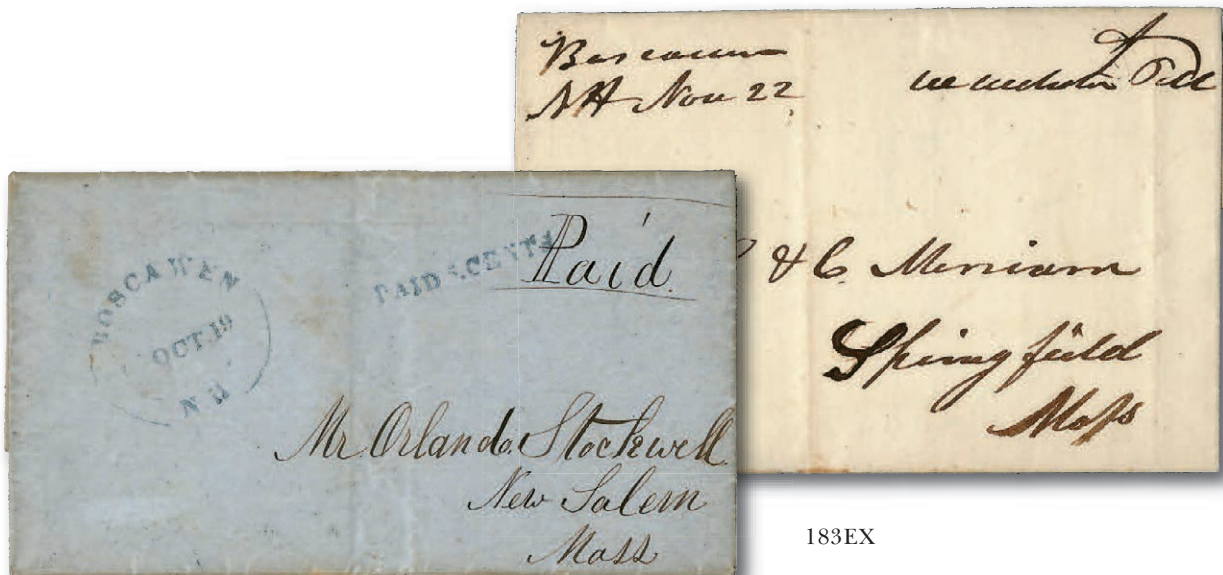 Boscawen
NH Nov 22
& C. Merriam
Springfield
Mass
BOSCAWEN
OCT. 19
N H
PAID 5 CENTS
Paid
Mr Orlando Stockwell
New Salem
Mass
183EX